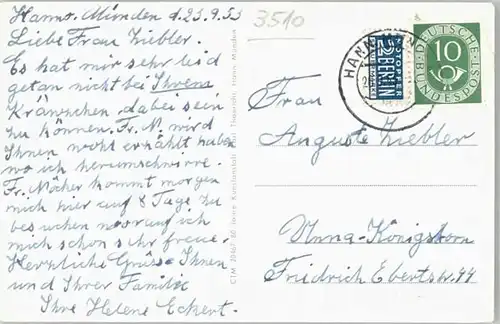 Hann. Münden d. 23.9.53
Liebe Frau Ziebler.
Es hat mir sehr leid
getan nicht bei Ihrem
Kränzchen dabei sein
zu können. Fr. M. wird
Ihnen wohl erzählt haben
wo ich herumschwirre.
Fr. Möcher kommt morgen
mich hier auf 8 Tage zu
besuchen worauf ich
mich schon sehr freue.
Herzliche Grüsse Ihnen
und Ihrer Familie
Ihre Helene Eckert.
3510
NOTOPFER
2 BERLIN
STEUERMARKE
DEUTSCHE BUNDESPOST
10
HANN
Frau
Auguste Ziebler
Unna-Königsborn
Friedrich Ebertstr. 44